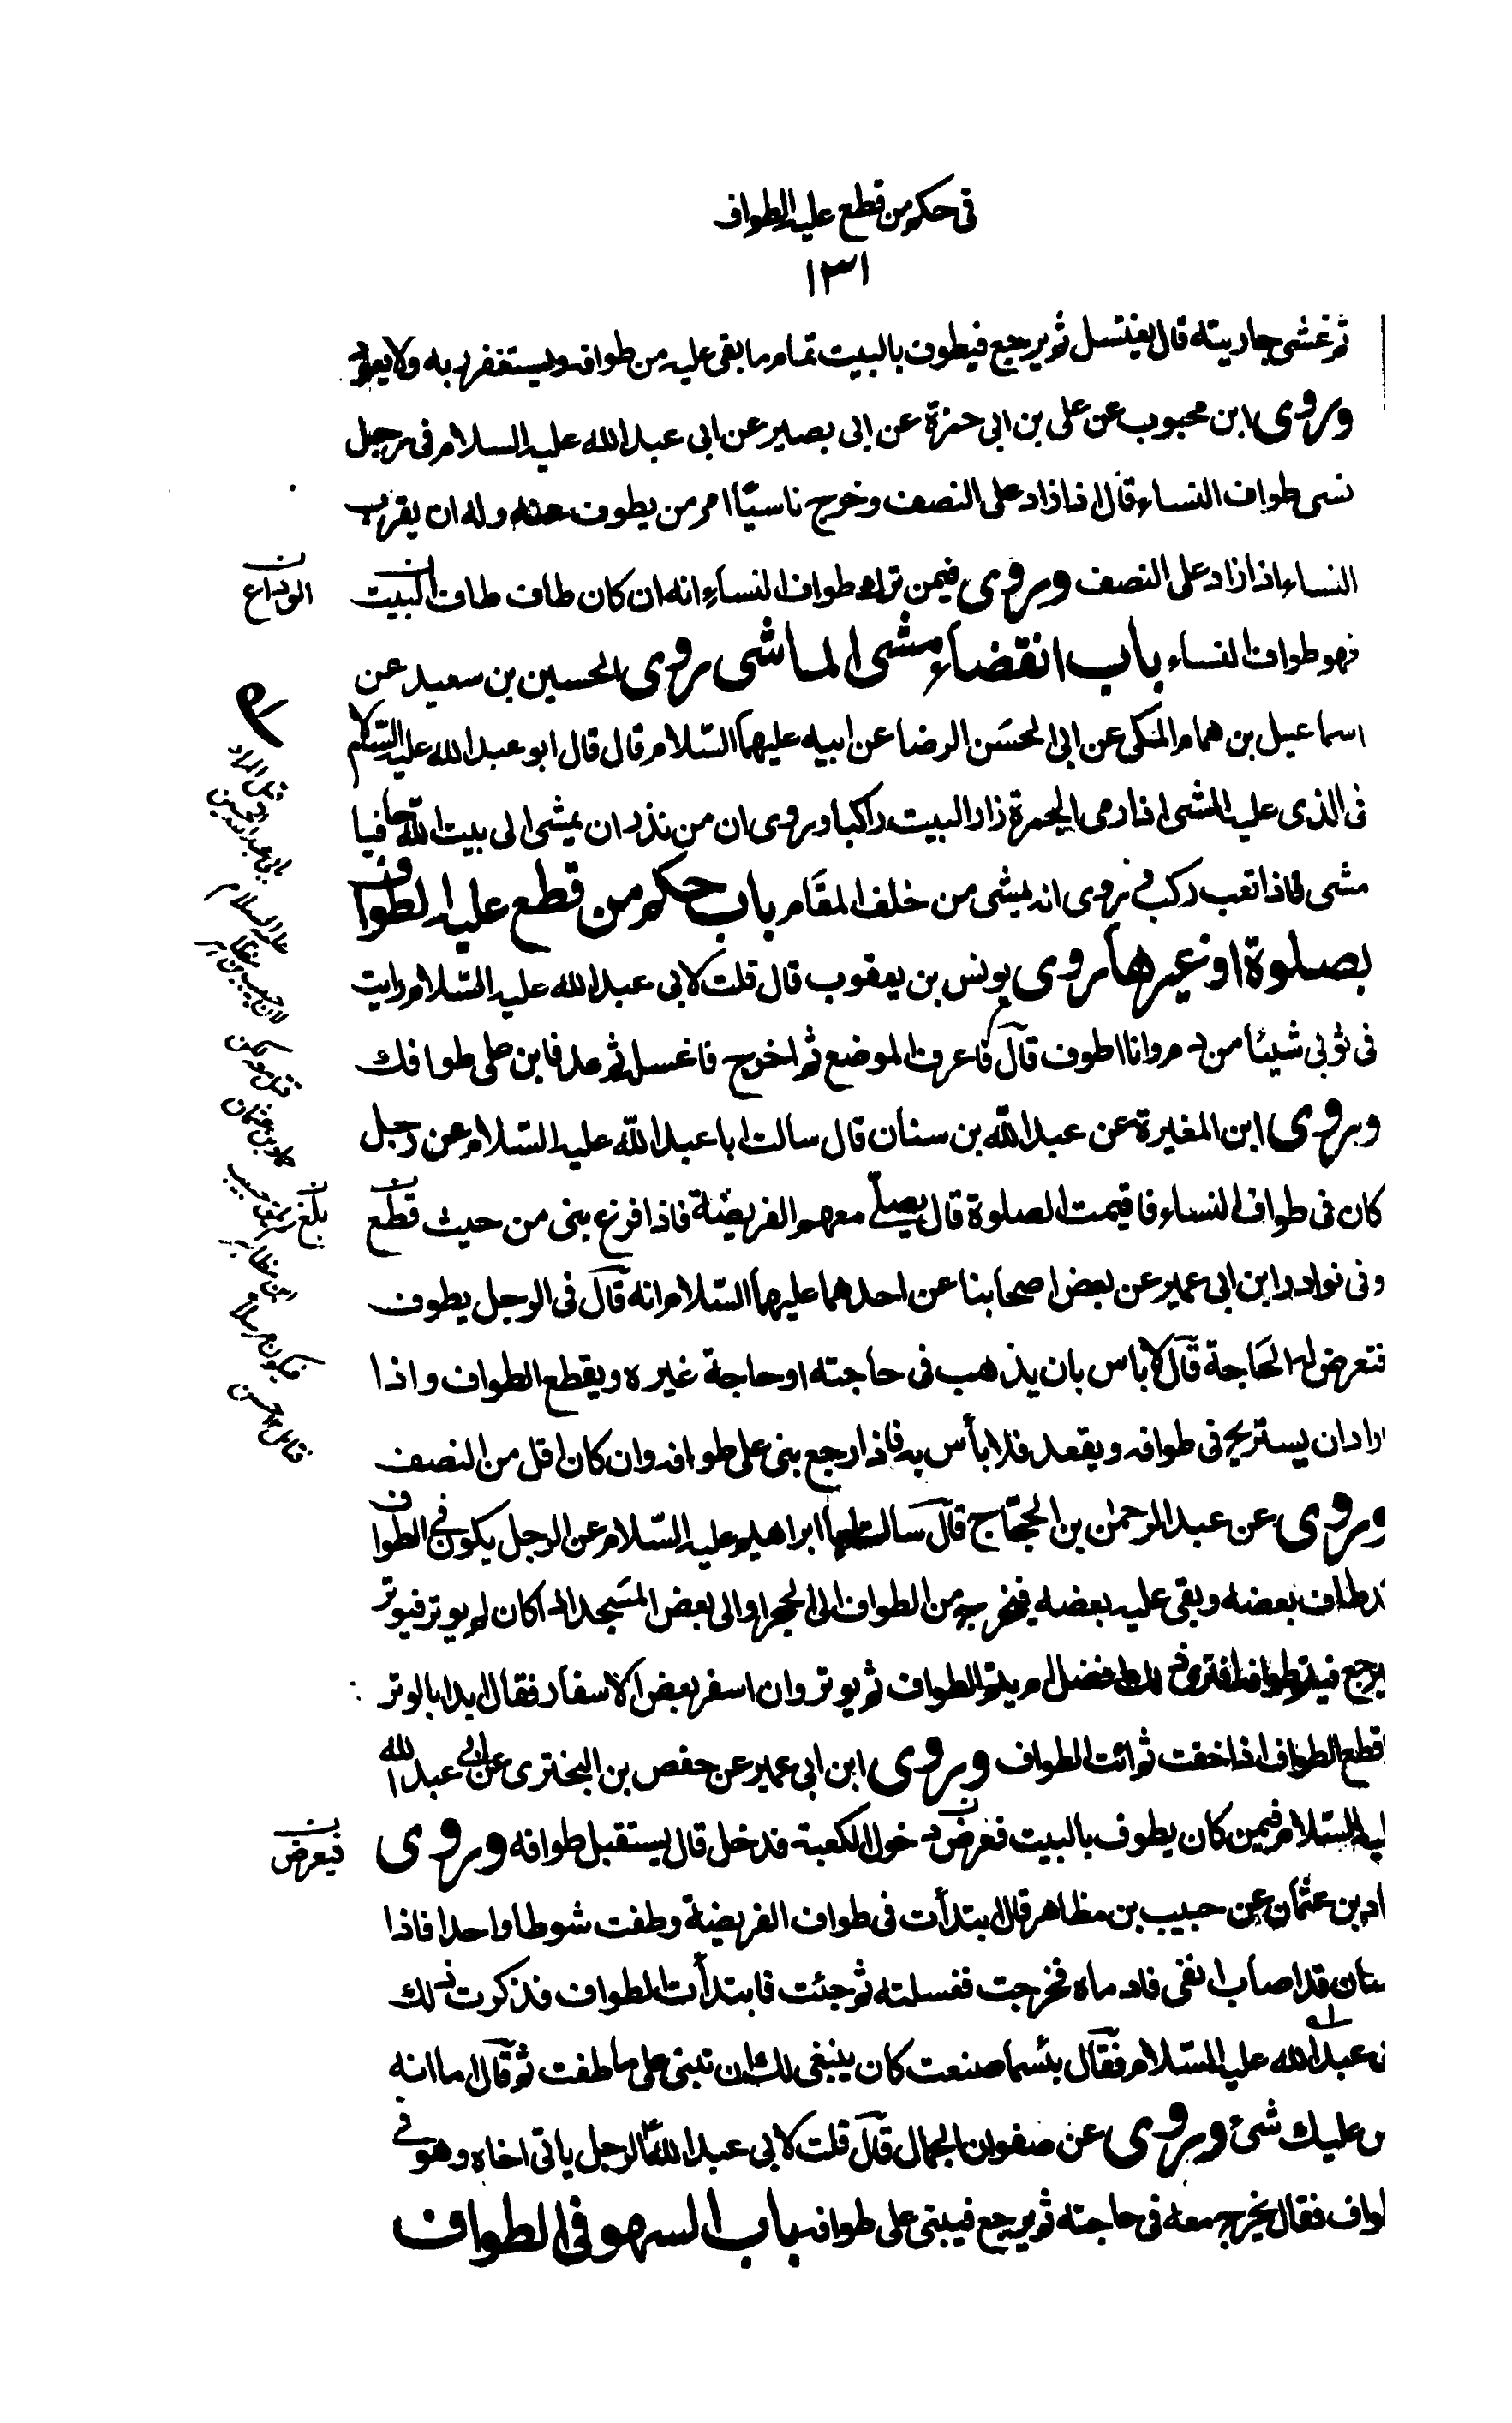 فى حكم من قطع عليه الطواف
١٣١
ثم غشى جاريته قال يغتسل ثم يرجع فيطوف بالبيت تمام ما بقى عليه من طوافه ويستغفر ربه ولا يعود
وروى ابن محبوب عن على بن ابى حمزة عن ابى بصير عن ابى عبد الله عليه السلام فى رجل
نسى طواف النساء قال اذا زاد على النصف وخرج ناسيًا امر من يطوف عنه وله ان يقرب
النساء اذا زاد على النصف وروى فيمن ترك طواف النساء انه ان كان طاف طاف البيت
الوداع
فهو طواف النساء باب انقضاء مشى الماشى روى الحسين بن سعيد عن
اسماعيل بن همام المكى عن ابى الحسَن الرضا عن ابيه عليهما السّلام قال قال ابو عبد الله عليه السّلام
فى الذى عليه المشى اذا رمى الجمرة زار البيت راكبا وروى ان من نذر ان يمشى الى بيت الله حافيا
مشى فاذا تعب ركب وروى انه يمشى من خلف المقَام باب حكم من قطع عليه الطواف
بصلوة او غيرها روى يونس بن يعقوب قال قلت لابى عبد الله عليه السّلام رايت
فى ثوبى شيئا من دم وانا اطوف قال فاعرف الموضع ثم اخرج فاغسله ثم عد فابن على طوافك
وروى ابن المغيرة عن عبد اللّه بن سنان قال سالت ابا عبد اللّه عليه السّلام عن رجل
كان فى طواف النساء فاقيمت الصلوة قال يصلّے معهم الفريضة فاذا فرغ بنى من حيث قطع
بلغ
وفى نوادر ابن ابى عمير عن بعض اصحابنا عن احدهما عليهما السّلام انه قال فى الرجل يطوف
فتعرض له الحَاجة قال لا باس بان يذهب فى حاجته او حاجة غيره ويقطع الطواف واذا
اراد ان يستريح فى طوافه ويقعد فلا بأس به فاذا رجع بنى على طوافه وان كان اقل من النصف
وروى عن عبد الرحمن بن الحجّاج قال سالت ابا ابراهيم عليه السّلام عن الرجل يكون فى الطواف
قد طاف بعضه وبقى عليه بعضه فيخرج من الطواف الى الحجر او الى بعض المسَجد اذا كان لم يوتر فيوتر
يرجع فيتم طوافه افترى ذلك افضل ام يتم الطواف ثم يوتر وان اسفر بعض الاسفار فقال ابدا بالوتر
اقطع الطواف اذا خفت ثم ائت الطواف وروى ابن ابى عمير عن حفص بن البخترى عن ابى عبد الله
ليه السّلام فيمن كان يطوف بالبيت فعرض دخول الكعبة فدخل قال يستقبل طوافه وروى
فيعرض
اد بن عثمان عن حبيب بن مظاهر قال ابتدأت فى طواف الفريضة وطفت شوطا واحدا فاذا
سان قد اصاب انفى فادماه فخرجت فغسلته ثم جئت فابتدأت الطواف فذكرت ذلك
عبد الله عليه السّلام فقال بئسما صنعت كان ينبغى لك ان تبنى على ما طفت ثم قال اما انه
س عليك شئ وروى عن صفوان الجمال قال قلت لابى عبد الله ع الرجل ياتى اخاه وهو فى
لواف فقال يخرج معه فى حاجته ثم يرجع فيبنى على طوافه باب السهو فى الطواف